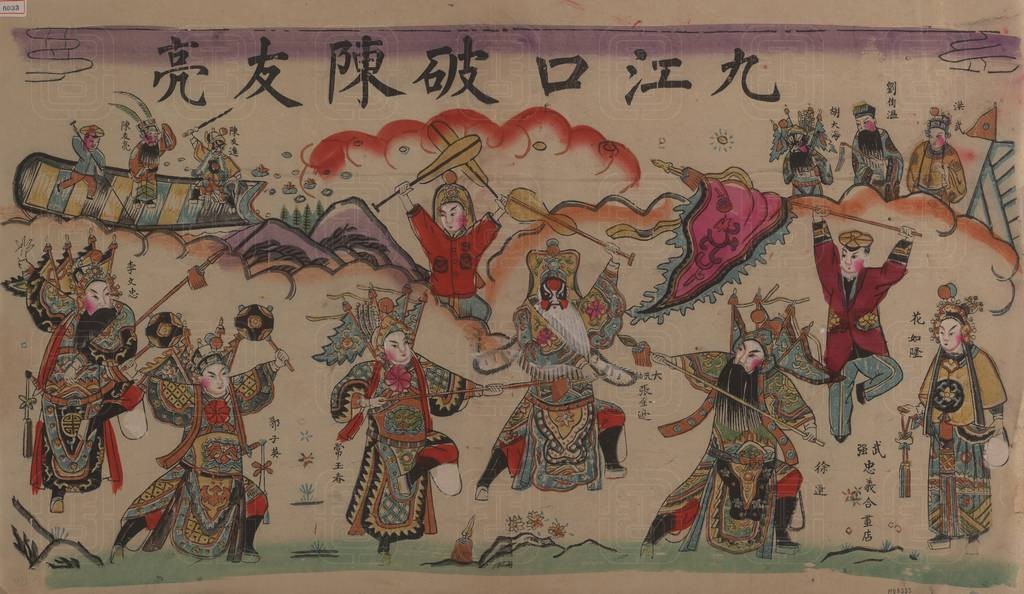 九江口破陳友亮
洪武
劉伯溫
胡大海
陳友亮
李文忠
郭子英
常玉春
張金遊
徐達
花如隆
武强忠義合畫店